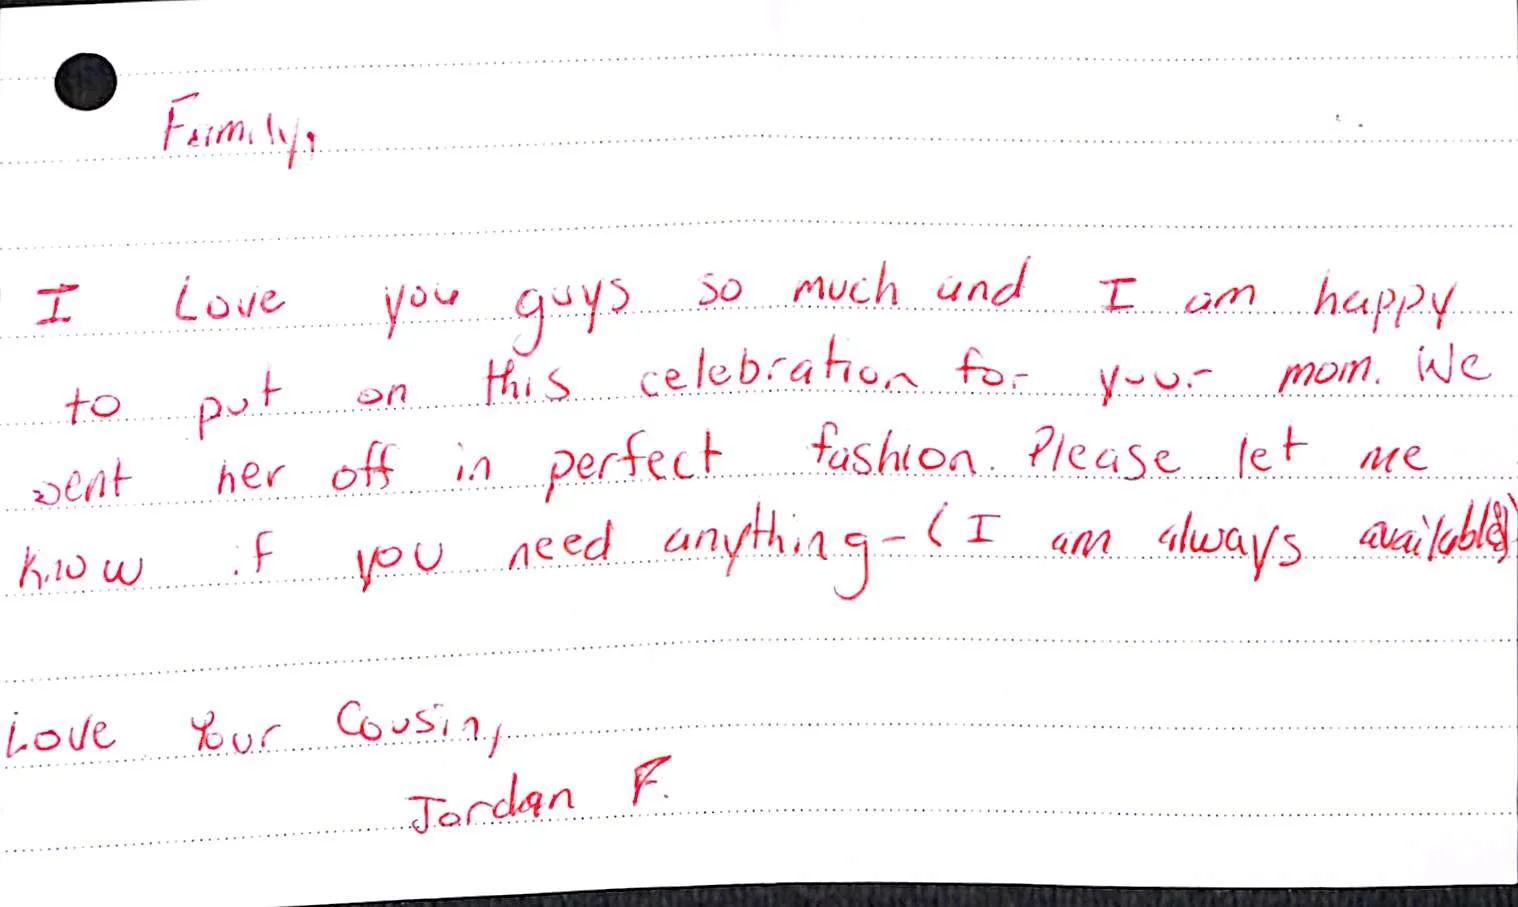 Family,
I Love you guys so much and I am happy
to put on this celebration for your mom. We
sent her off in perfect fashion. Please let me
know if you need anything - (I am always available)
Love Your Cousin,
Jordan F.